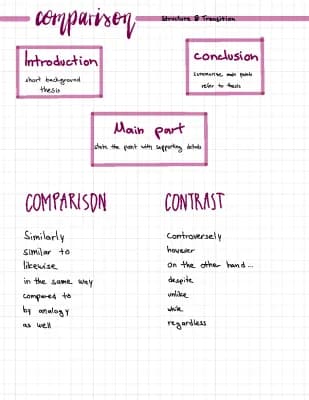 comparison
Structure & Transition
Introduction
short background
thesis
conclusion
summarise main points
refer to thesis
Main part
state the point with supporting details
COMPARISON
Similarly
similar to
likewise
in the same way
compared to
by analogy
as well
CONTRAST
Controversely
however
on the other hand...
despite
unlike
while
regardless